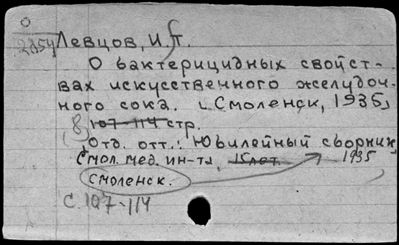 2854 Левцов, И.Т.
О бактерицидных свойст-
вах искусственного желудоч-
ного сока. Смоленск, 1936,
8, 107-114 стр.
Отд. отт.: Юбилейный сборник
Смол. мед. ин-та, 15 лет. 1935
Смоленск.
С. 107-114